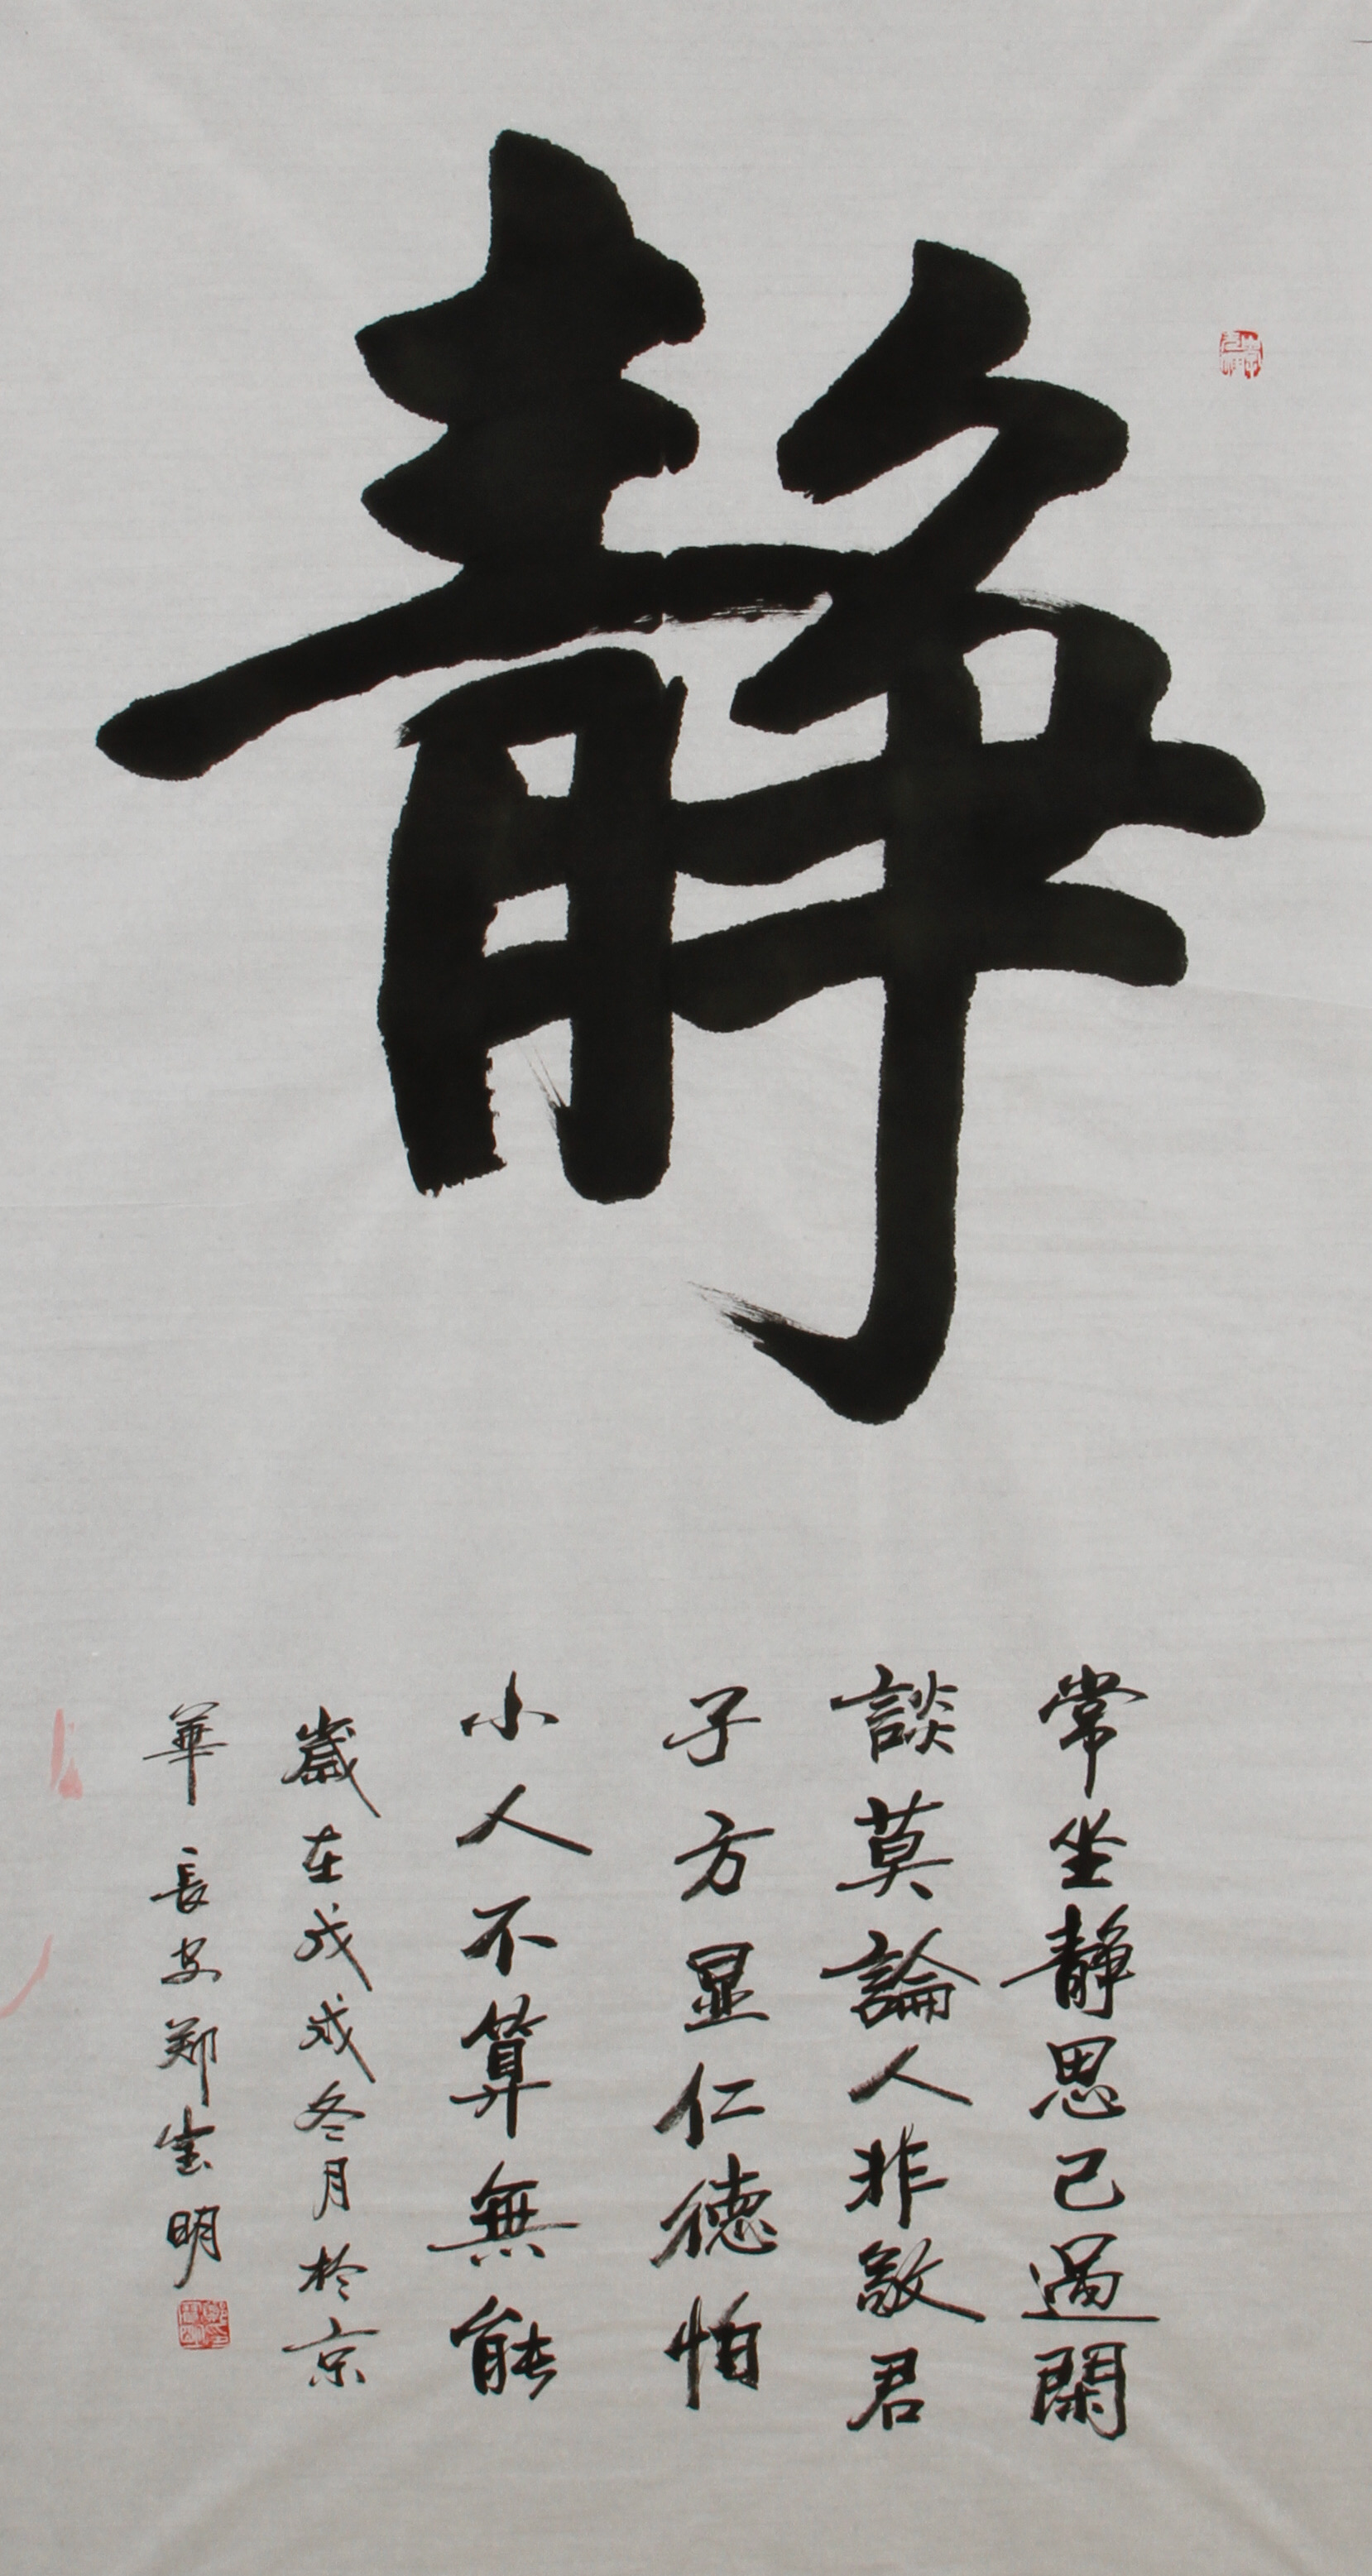 静
常坐静思己過閑
談莫論人非敬君
子方显仁德怕
小人不算無能
歲在戊戌冬月於京
華長安郑宝明